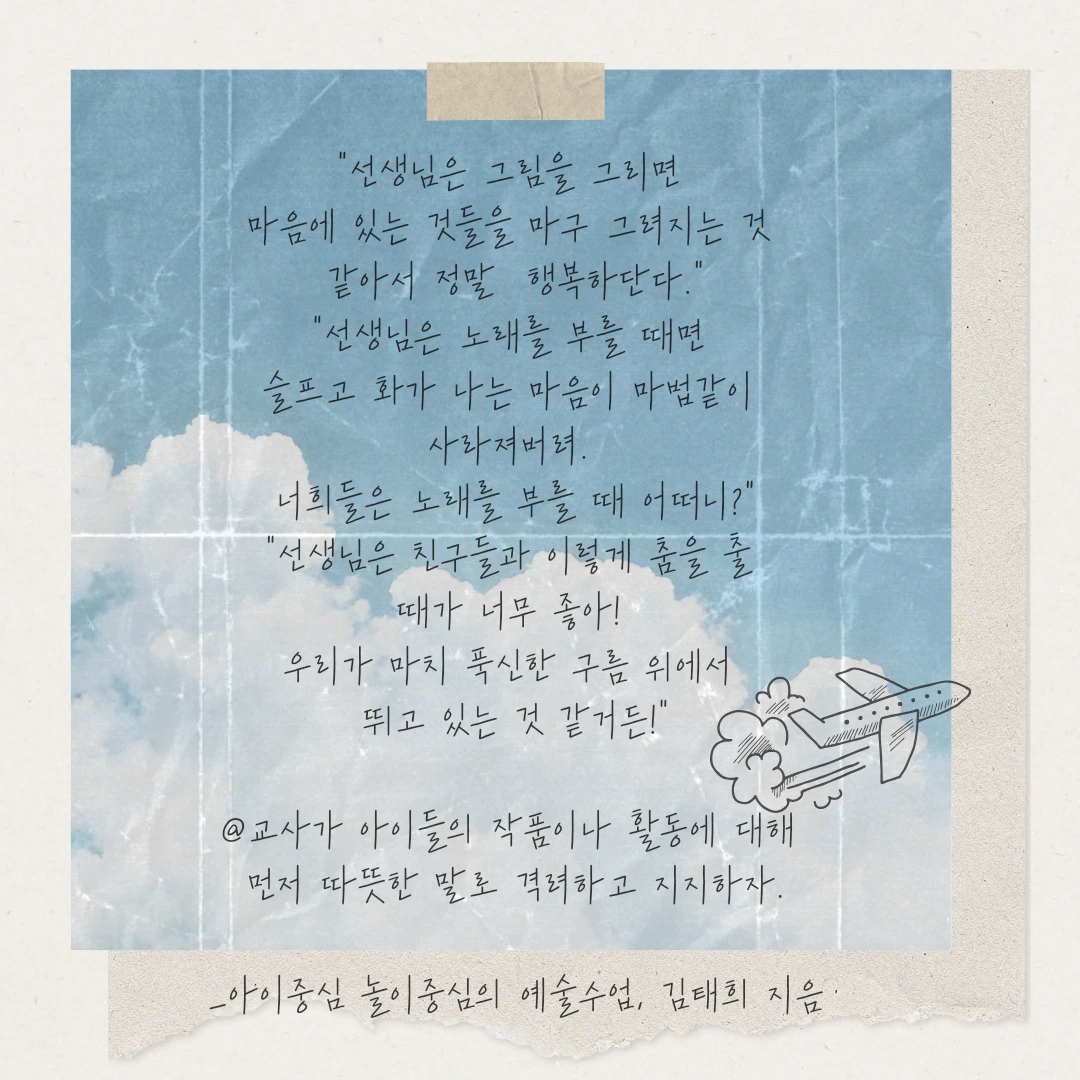 "선생님은 그림을 그리면
마음에 있는 것들을 마구 그려지는 것
같아서 정말 행복하단다."
"선생님은 노래를 부를 때면
슬프고 화가 나는 마음이 마법같이
사라져버려.
너희들은 노래를 부를 때 어떠니?"
"선생님은 친구들과 이렇게 춤을 출
때가 너무 좋아!
우리가 마치 푹신한 구름 위에서
뛰고 있는 것 같거든!"
@교사가 아이들의 작품이나 활동에 대해
먼저 따뜻한 말로 격려하고 지지하자.
_아이중심 놀이중심의 예술수업, 김태희 지음